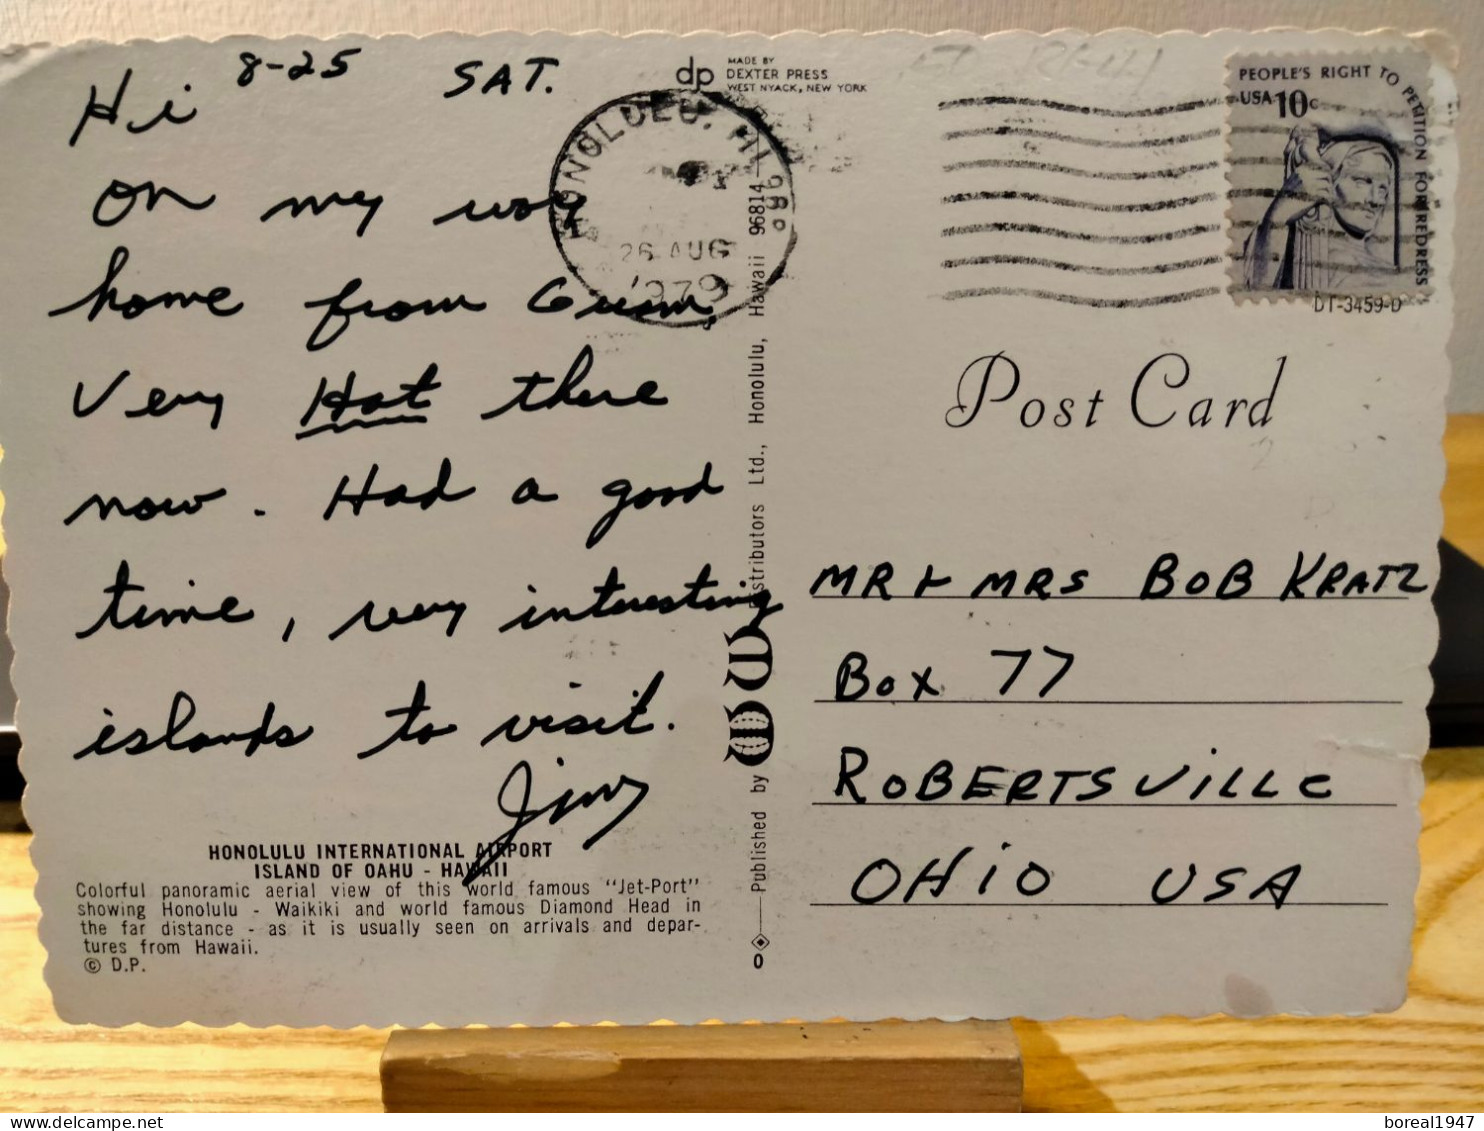 8-25 SAT.
Hi
on my way
home from Guam,
Very Hot there
now. Had a good
time, very interesting
islands to visit.
Jim
HONOLULU INTERNATIONAL AIRPORT
ISLAND OF OAHU - HAWAII
Colorful panoramic aerial view of this world famous "Jet-Port"
showing Honolulu - Waikiki and world famous Diamond Head in
the far distance - as it is usually seen on arrivals and depar-
tures from Hawaii.
© D.P.
dp MADE BY
DEXTER PRESS
WEST NYACK, NEW YORK
HONOLULU, HI 968
26 AUG
1979
Published by Distributors Ltd., Honolulu, Hawaii 96814
0
PEOPLE'S RIGHT TO PETITION FOR REDRESS
USA 10c
DT-3459-D
Post Card
MR & MRS BOB KRATZ
Box 77
ROBERTSVILLE
OHIO USA
delcampe.net
boreal1947